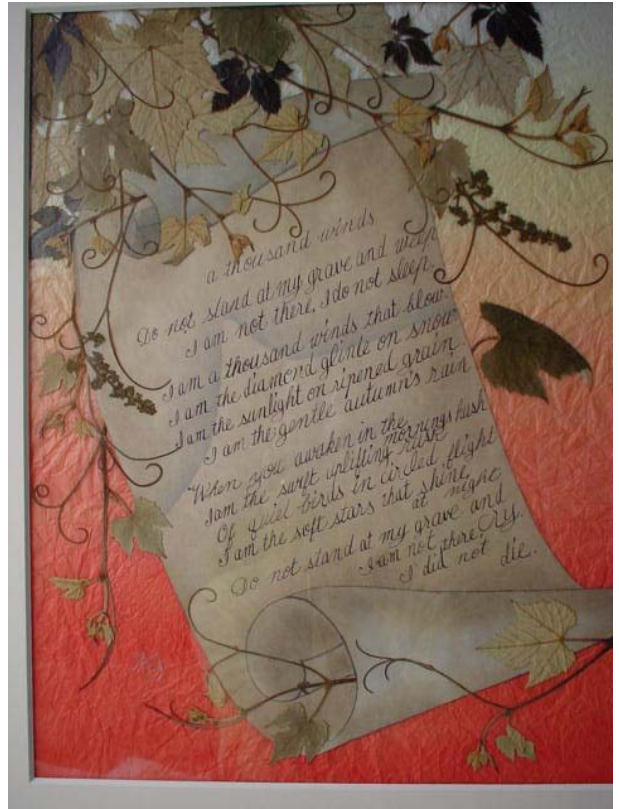 a thousand winds
Do not stand at my grave and weep
I am not there, I do not sleep.
I am a thousand winds that blow
I am the diamond glinle on snow
I am the sunlight on ripened grain
I am the gentle autumn's rain
"When you awaken in the
mornings hush
I am the swift uplifting rush
Of quiet birds in circled flight
I am the soft stars that shine
at night
Do not stand at my grave and
cry.
I am not there,
I did not die.